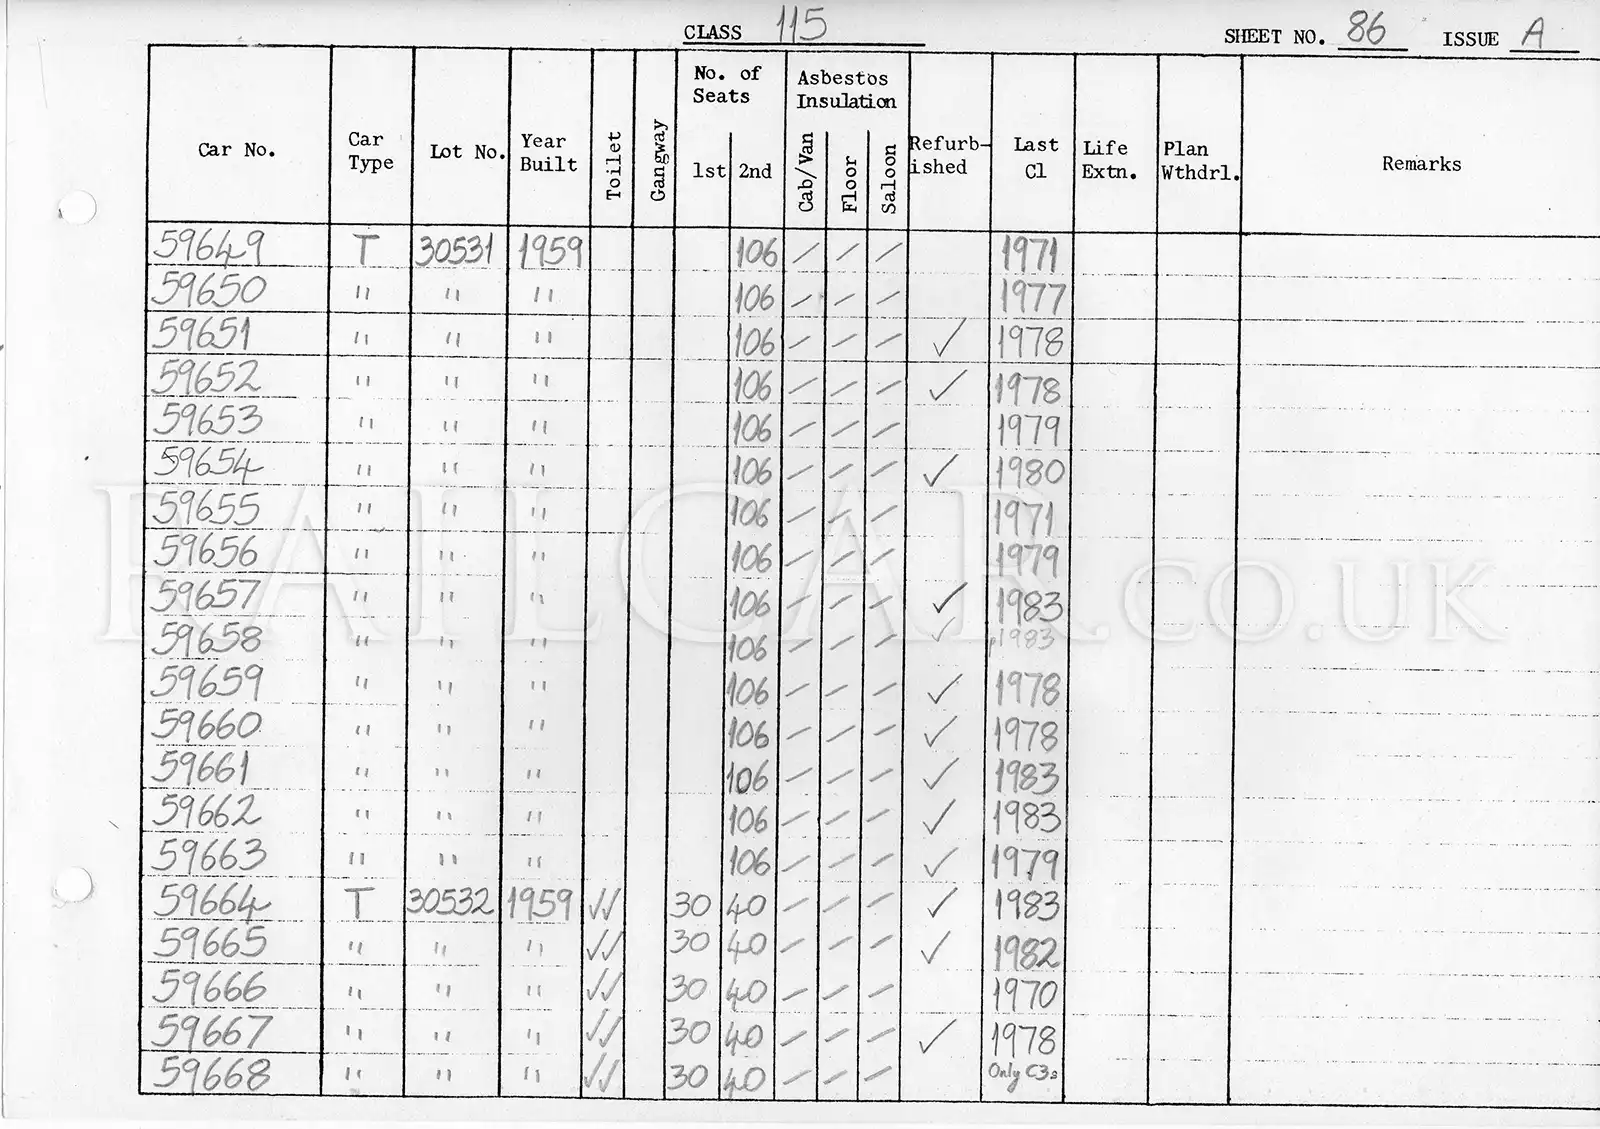 CLASS 115 SHEET NO. 86 ISSUE A
Car No. Car Type Lot No. Year Built Toilet Gangway No. of Seats 1st 2nd Asbestos Insulation Cab/Van Floor Saloon Refurb-ished Last Cl Life Extn. Plan Wthdrl. Remarks
59649 T 30531 1959 106 / / / 1971
59650 " " " 106 / / / 1977
59651 " " " 106 / / / ✓ 1978
59652 " " " 106 / / / ✓ 1978
59653 " " " 106 / / / 1979
59654 " " " 106 / / / ✓ 1980
59655 " " " 106 / / / 1971
59656 " " " 106 / / / 1979
59657 " " " 106 / / / ✓ 1983
59658 " " " 106 / / / ✓ p1983
59659 " " " 106 / / / ✓ 1978
59660 " " " 106 / / / ✓ 1978
59661 " " " 106 / / / ✓ 1983
59662 " " " 106 / / / ✓ 1983
59663 " " " 106 / / / ✓ 1979
59664 T 30532 1959 ✓✓ 30 40 / / / ✓ 1983
59665 " " " ✓✓ 30 40 / / / ✓ 1982
59666 " " " ✓✓ 30 40 / / / 1970
59667 " " " ✓✓ 30 40 / / / ✓ 1978
59668 " " " ✓✓ 30 40 / / / Only C3s
RAILCAR.CO.UK